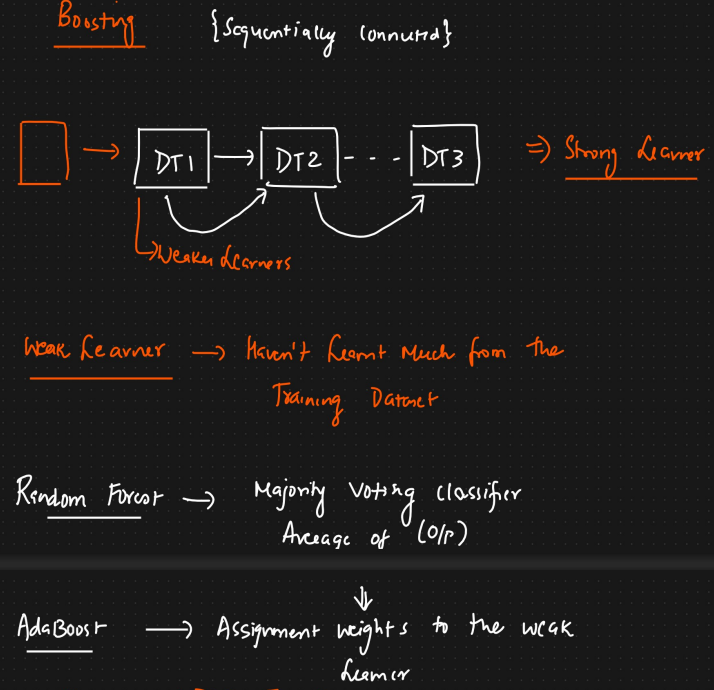 Boosting {Sequentially Connected}
DT1 DT2 - - - DT3 => Strong Learner
Weaker Learners
Weak Learner → Haven't Learnt Much from the
Training Dataset
Random Forest → Majority Voting Classifier
Average of (O/P)
AdaBoost → Assignment weights to the weak
Learner